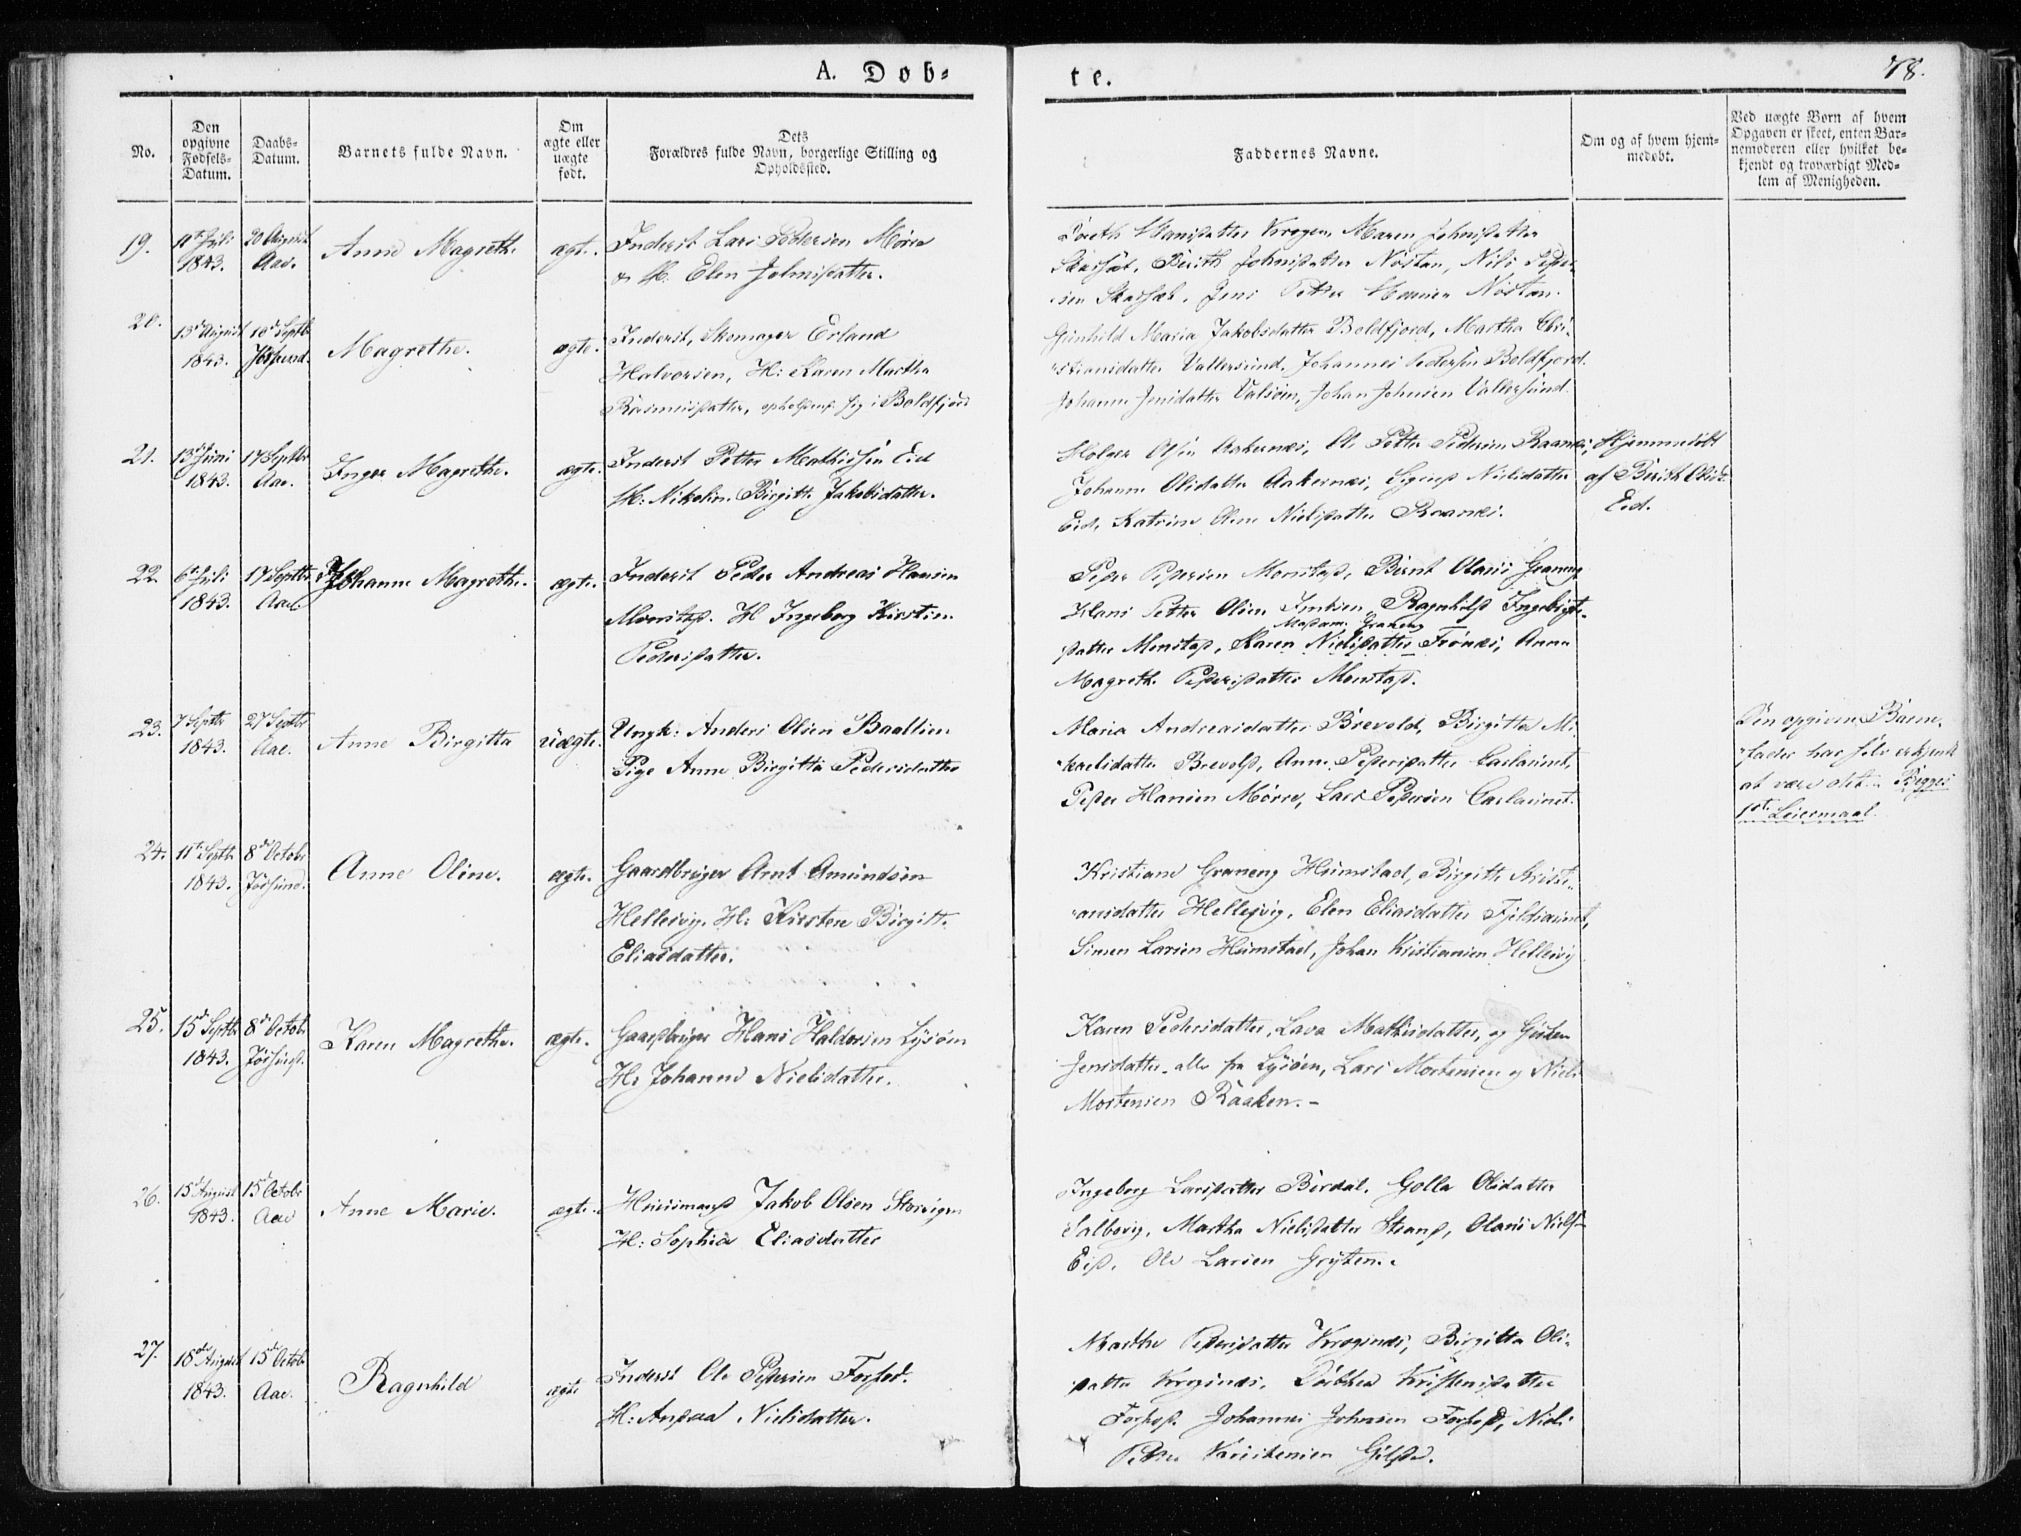 A. Døb-
te.
78.
No.
Den opgivne Fødsels-Datum.
Daabs-Datum.
Barnets fulde Navn.
Om ægte eller uægte født.
Dets Forældres fulde Navn, borgerlige Stilling og Opholdssted.
Faddernes Navne.
Om og af hvem hjem-medøbt.
Ved uægte Børn af hvem
Opgaven er skeet, enten Bar-
nemoderen eller hvilket be-
kjendt og troværdigt Med-
lem af Menigheden.
19. 11te Juli 1843. 20 August Aae. Anne Magrethe. ægte.
Inderst Lars Pedersen Mørre
& H. Elen Johnsdatter.
Maren Johnsdatter
Berith Johnsdatter Nøstan, Nils Peder-
sen Jens Petter Nøstan.
20. 13de August 1843. 10de Septbr Jøssund. Magrethe. ægte.
Inderst, Skomager Erland
Halvorsen, H: Karen Martha
Rasmusdatter, opholdende sig i Boldfjord
Gunhild Maria Jakobsdatter Boldfjord, Martha Chri-
stiansdatter Vallersund, Johannes Pedersen Boldfjord.
Johanna Jensdatter Valsøen, Johan Johnsen Vallersund.
21. 13de Juni 1843. 17 Septbr Aae. Inger Magrethe. ægte.
Inderst Petter Mathissen Eid
H: Nikoline Birgitte Jakobsdatter.
Holger Olsen Aakernæs, Ole Petter Pedersen Raanes,
Johanne Olsdatter Aakernæs, Nielsdatter
Eid, Katrine Oline Nielsdatter Raanes.
Hjemmedøbt
af Berith Olsd.
Eid.
22. 6te Juli 1843. 17 Septbr Aae. Johanne Magrethe. ægte.
Inderst Peder Andreas Hansen
Monstad. H Ingeborg Kirstine
Pedersdatter.
Peder Pedersen Monstad, Bernt Olaus Graneng
Hans Petter Olsen Ragnhild Ingebrigt-
Madam Graneng
datter Monstad, Karen Nielsdatter Anne
Magrethe Pedersdatter Monstad.
23. 7 Septbr 1843. 27 Septbr Aae. Anne Birgitta uægte.
Ungk: Anders Olsen Baollien
Pige Anne Birgitta Pedersdatter
Maria Andreasdatter Brevold, Birgitta Mi-
kaelsdatter Brevold, Anne Pedersdatter
Peder Hansen Mørre, Lars Pedersen
Den opgivne Barne-
fader har selv erkjendt
at være det. Begges
1ste Leiermaal.
24. 11te Septbr 1843. 8de Octobr Jøssund. Anne Oline. ægte.
Gaardbruger Arnt Amundsen
Hellesvig. H: Kirsten Birgitte
Eliasdatter.
Kristiane Graneng Humstad, Birgitte Kristi-
ansdatter Hellesvig, Elen Eliasdatter
Simen Larsen Humstad, Johan Kristiansen Hellesvig
25. 15de Septbr 1843. 8de Octobr Jøssund. Karen Magrethe. ægte.
Gaardbruger Hans Haldorsen Lysøen
H: Johanne Nielsdatter.
Karen Pedersdatter, Lava Mathisdatter, og
Jensdatter, alle fra Lysøen, Lars Mortensen og Niels
Mortensen Raaken.-
26. 15de August 1843. 15de Octobr Aae Anne Marie. ægte.
Huusmand Jakob Olsen Storvigen
H: Sophia Eliasdatter
Ingeborg Larsdatter Berdal. Golla Olsdatter
Martha Nielsdatter Strand, Olaus Niels-
Eid. Ole Larsen Gryten.
27. 18de August 1843. 15de Octobr Aae. Ragnhild ægte
Inderst Ole Pedersen
H: Nielsdatter.
Marthe Pedersdatter Birgitta Ols-
datter Kristensdatter
Johannes Johnsen Niels
Petter